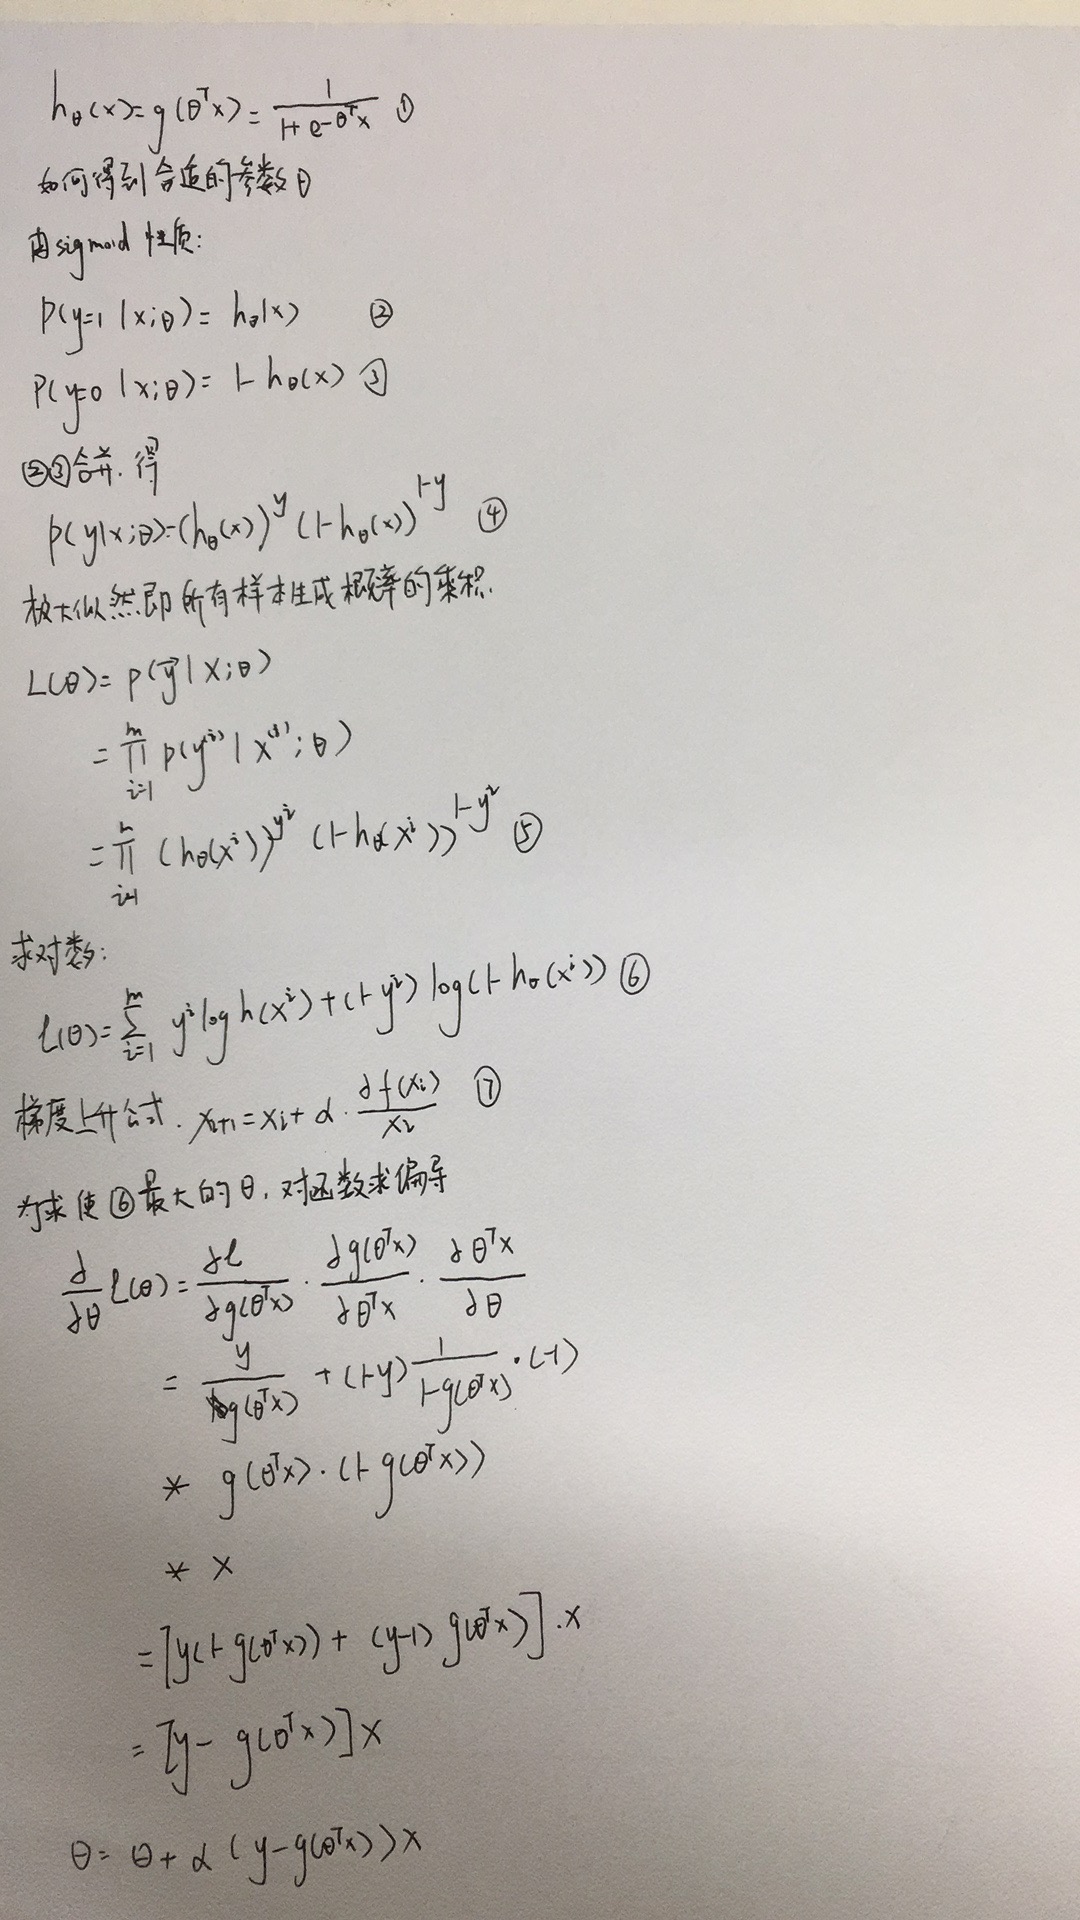 hθ(x)=g(θᵀx)= 1/(1+e^-θᵀx) ①
如何得到合适的参数θ
由sigmoid 性质:
P(y=1 | x;θ)= hθ(x) ②
P(y=0 | x;θ)= 1-hθ(x) ③
②③合并.得
p(y|x;θ)=(hθ(x))^y (1-hθ(x))^1-y ④
极大似然即所有样本生成概率的乘积.
L(θ)= p(y⃗ | X;θ)
= ∏ i=1 m p(y^(i) | x^(i);θ)
= ∏ i=1 m (hθ(x^i))^y^i (1-hθ(x^i))^1-y^i ⑤
求对数:
ℓ(θ)= ∑ i=1 m y^i log h(x^i)+(1-y^i) log(1-hθ(x^i)) ⑥
梯度上升公式. x_i+1=x_i+ α · ∂f(x_i)/x_i ⑦
为求使⑥最大的θ,对函数求偏导
∂/∂θ ℓ(θ)= ∂ℓ/∂g(θᵀx) · ∂g(θᵀx)/∂θᵀx · ∂θᵀx/∂θ
= y/g(θᵀx) +(1-y) 1/(1-g(θᵀx)) ·(-1)
* g(θᵀx)·(1-g(θᵀx))
* x
=[y(1-g(θᵀx))+ (y-1) g(θᵀx)]·x
=[y- g(θᵀx)]x
θ= θ+α (y-g(θᵀx))x